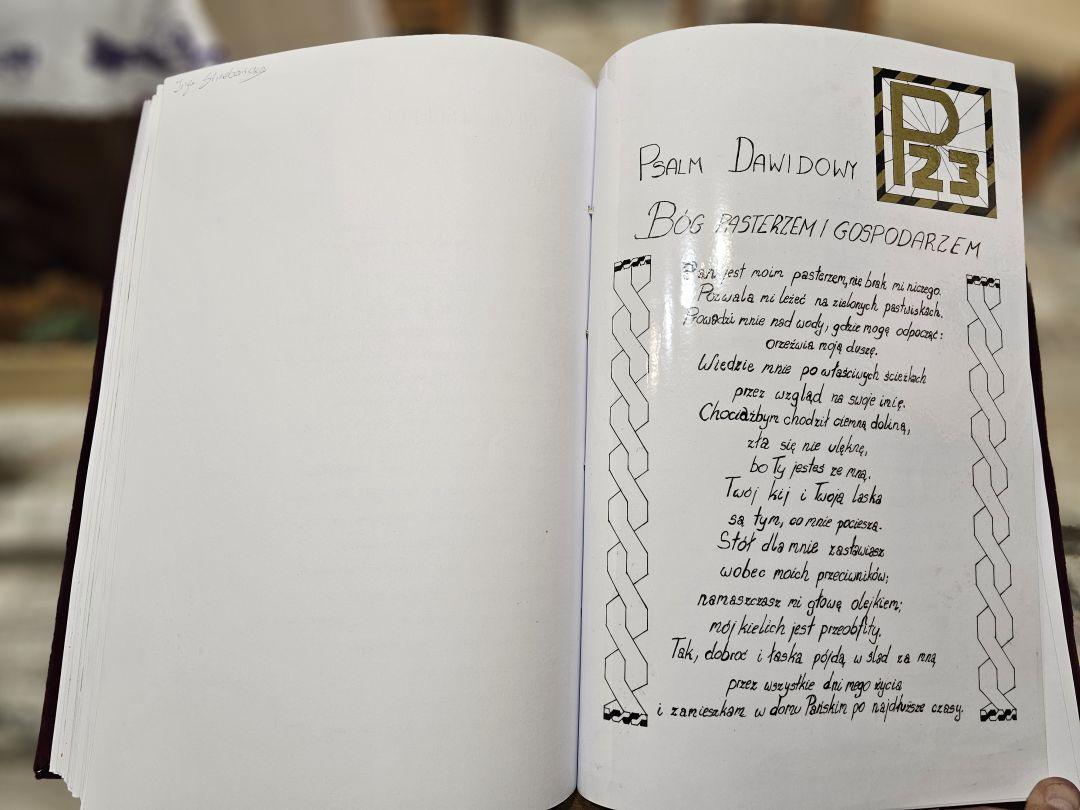 P
23
PSALM DAWIDOWY
BÓG PASTERZEM I GOSPODARZEM
Pan jest moim pasterzem, nie brak mi niczego.
Pozwala mi leżeć na zielonych pastwiskach.
Prowadzi mnie nad wody, gdzie mogę odpocząć:
orzeźwia moją duszę.
Wiedzie mnie po właściwych ścieżkach
przez wzgląd na swoje imię.
Chociażbym chodził ciemną doliną,
zła się nie ulęknę,
bo Ty jesteś ze mną.
Twój kij i Twoja laska
są tym, co mnie pociesza.
Stół dla mnie zastawiasz
wobec moich przeciwników;
namaszczasz mi głowę olejkiem;
mój kielich jest przeobfity.
Tak, dobroć i łaska pójdą w ślad za mną
przez wszystkie dni mego życia
i zamieszkam w domu Pańskim po najdłuższe czasy.